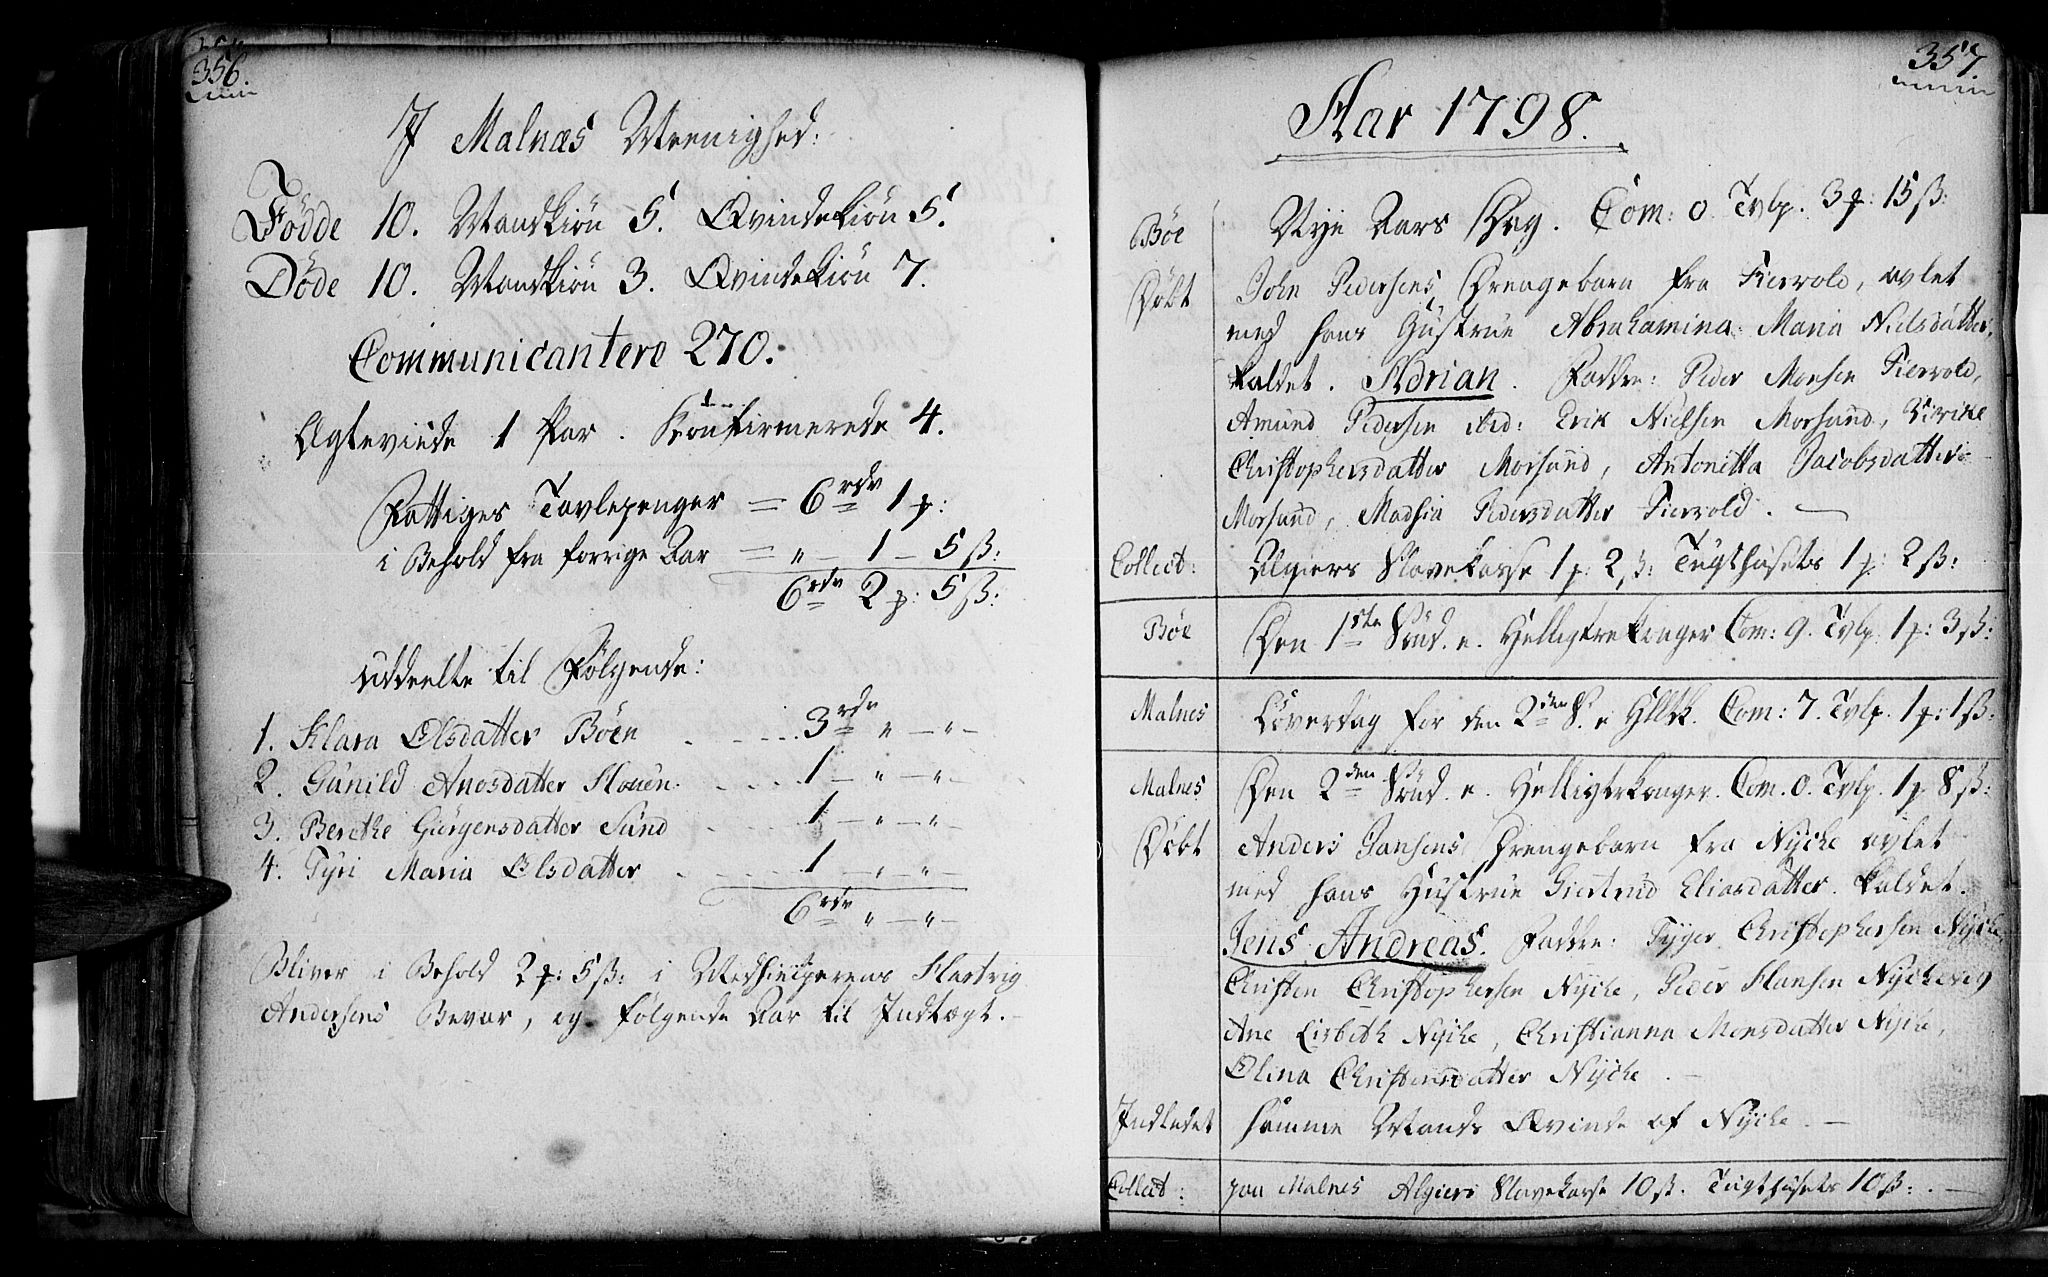 356.
I Malnæs Meenighed:
Födde 10. Mandkiön 5. Qvindekiön 5.
Döde 10. Mandkiön 3. Qvindekiön 7.
Communicantere 270.
Ægteviede 1 Par. Konfirmerede 4.
Fattiges Tavlepenger = 6 rdr 1 ƿ:
i Behold fra forrige Aar = " — 1 — 5 ß:
6 rdr 2 ƿ: 5 ß:
Uddeelte til Følgende:
1. Klara Olsdatter Böen . — . — . 3 rdr " — " —
2. Gunild Anosdatter . — . — . 1 — " — " —
3. Berethe Giörgensdatter Sund . — . — . 1 — " — " —
4. Tyri Maria Olsdatter . — . — . 1 — " — " —
6 rdr " — " —
Bliver i Behold 2 ƿ: 5 ß: i Medhielperens Hartvig
Andersens Bevar, og følgende Aar til Indtægt. —
357
Aar 1798.
Böe Nye Aars Dag. Com: 0. Tvlp. 3 ƿ: 15 ß:
Döbt John Pedersens Drengebarn fra Fiervold, avlet
med hans Hustrue Abrahamina Maria Nielsdatter,
kaldet. Adrian. Faddre: Peder Monsen Fiervold,
Amund Pedersen ibid: Erik Nielsen Morsund,
Christophersdatter Morsund, Antonitta Jacobsdatter
Morsund, Madsia Pedersdatter Fiervold. —
Collect: Algiers Slavekasse 1 ƿ: 2 ß: Tugthusets 1 ƿ: 2 ß:
Böe Den 1ste Sönd. e. Helligtrekonger Com: 9. Tvlp. 1 ƿ: 3 ß:
Malnes Löverdag for den 2den S. e. Hlltk. Com: 7. Tvlp. 1 ƿ: 1 ß:
Malnes Den 2den Sönd. e. Helligtrkonger. Com. 0. Tvlp. 1 ƿ 8 ß:
Döbt Anders Jansens Drengebarn fra Nyche avlet
med hans Hustrue Giertrud Eliasdatter. kaldet.
Jens Andreas. Faddre: Tyger Christophersen Nyche,
Christen Christophersen Nyche, Peder Hansen Nychevig
Ane Lisbeth Nyche, Christianna Monsdatter Nyche,
Olina Christensdatter Nyche. —
Indledet Samme Mands Qvinde af Nyche. —
Collect: paa Malnes Algiers Slavekasse 10 ß. Tugthusets 10 ß: . —